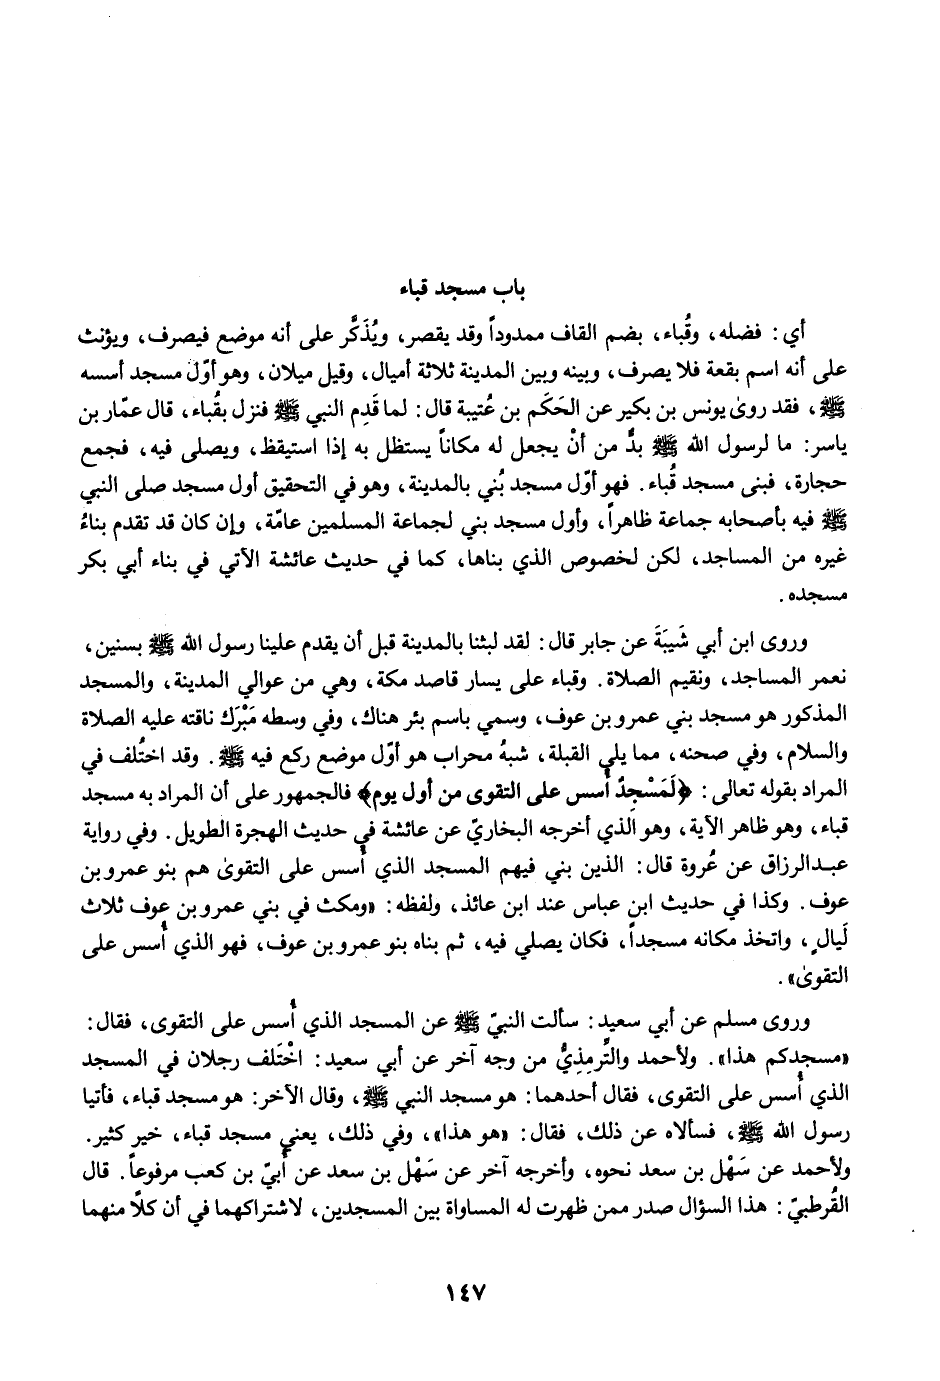 باب مسجد قباء
أي: فضله، وقُباء، بضم القاف ممدوداً وقد يقصر، ويُذَكَّر على أنه موضع فيصرف، ويؤنث
على أنه اسم بقعة فلا يصرف، وبينه وبين المدينة ثلاثة أميال، وقيل ميلان، وهو أوّل مسجد أسسه
ﷺ، فقد روىٰ يونس بن بكير عن الحَكَم بن عُتيبة قال: لما قَدِم النبي ﷺ فنزل بقُباء، قال عمّار بن
ياسر: ما لرسول الله ﷺ بدٌّ من أنْ يجعل له مكاناً يستظل به إذا استيقظ، ويصلى فيه، فجمع
حجارة، فبنى مسجد قُباء. فهو أوّل مسجد بُني بالمدينة، وهو في التحقيق أول مسجد صلى النبي
ﷺ فيه بأصحابه جماعة ظاهراً، وأول مسجد بني لجماعة المسلمين عامّة، وإن كان قد تقدم بناءُ
غيره من المساجد، لكن لخصوص الذي بناها، كما في حديث عائشة الآتي في بناء أبي بكر
مسجده.
وروى ابن أبي شَيبَةَ عن جابر قال: لقد لبثنا بالمدينة قبل أن يقدم علينا رسول الله ﷺ بسنين،
نعمر المساجد، ونقيم الصلاة. وقباء على يسار قاصد مكة، وهي من عوالي المدينة، والمسجد
المذكور هو مسجد بني عمرو بن عوف، وسمي باسم بئر هناك، وفي وسطه مَبْرَك ناقته عليه الصلاة
والسلام، وفي صحنه، مما يلي القبلة، شبهُ محراب هو أوّل موضع ركع فيه ﷺ. وقد اختُلف في
المراد بقوله تعالى: ﴿لَمَسْجِدٌ أُسس على التقوى من أول يوم﴾ فالجمهور على أن المراد به مسجد
قباء، وهو ظاهر الآية، وهو الذي أخرجه البخاريّ عن عائشة في حديث الهجرة الطويل. وفي رواية
عبدالرزاق عن عُروة قال: الذين بني فيهم المسجد الذي أُسس على التقوىٰ هم بنو عمرو بن
عوف. وكذا في حديث ابن عباس عند ابن عائذ، ولفظه: «ومكث في بني عمرو بن عوف ثلاث
لَيالٍ، واتخذ مكانه مسجداً، فكان يصلي فيه، ثم بناه بنو عمرو بن عوف، فهو الذي أُسس على
التقوىٰ».
وروى مسلم عن أبي سعيد: سألت النبيّ ﷺ عن المسجد الذي أُسس على التقوى، فقال:
«مسجدكم هذا». ولأحمد والتِّرمِذِيُّ من وجه آخر عن أبي سعيد: اخْتَلف رجلان في المسجد
الذي أُسس على التقوى، فقال أحدهما: هو مسجد النبي ﷺ، وقال الآخر: هو مسجد قباء، فأتيا
رسول الله ﷺ، فسألاه عن ذلك، فقال: «هو هذا»، وفي ذلك، يعني مسجد قباء، خير كثير.
ولأحمد عن سَهْل بن سعد نحوه، وأخرجه آخر عن سَهْل بن سعد عن أُبيّ بن كعب مرفوعاً. قال
القُرطبيّ: هذا السؤال صدر ممن ظهرت له المساواة بين المسجدين، لاشتراكهما في أن كلاً منهما
١٤٧